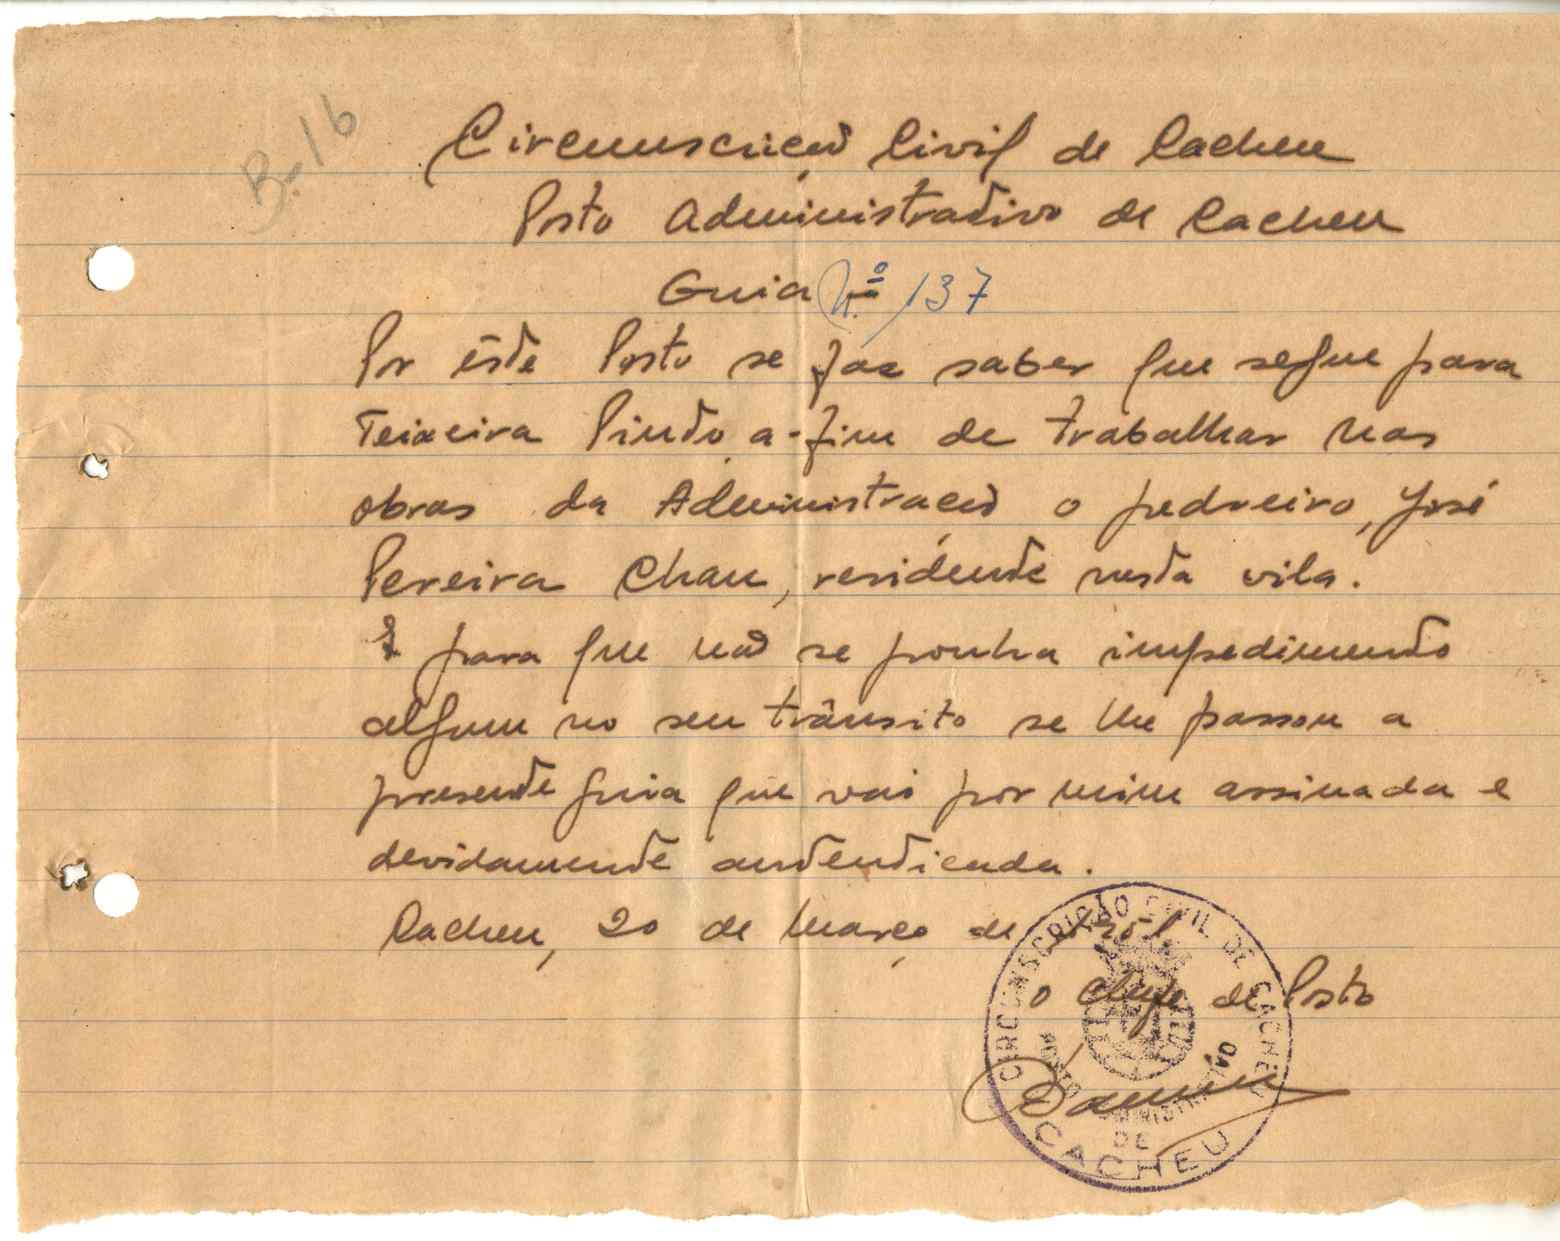 B-16
Circumscrição Civil de Cacheu
Posto Administrativo de Cacheu
Guia Nº 137
Por êste Posto se faz saber que segue para
Teixeira Pinto, a-fim de trabalhar nas
obras da Administração o pedreiro, José
Pereira Chau, residente nesta vila.
E para que não se ponha impedimento
algum no seu trânsito se lhe passou a
presente guia que vai por mim assinada e
devidamente autenticada.
Cacheu, 20 de Março de 1951
O Chefe de Posto
CIRCUNSCRIÇÃO CIVIL DE CACHEU
POSTO ADMINISTRATIVO
DE
CACHEU